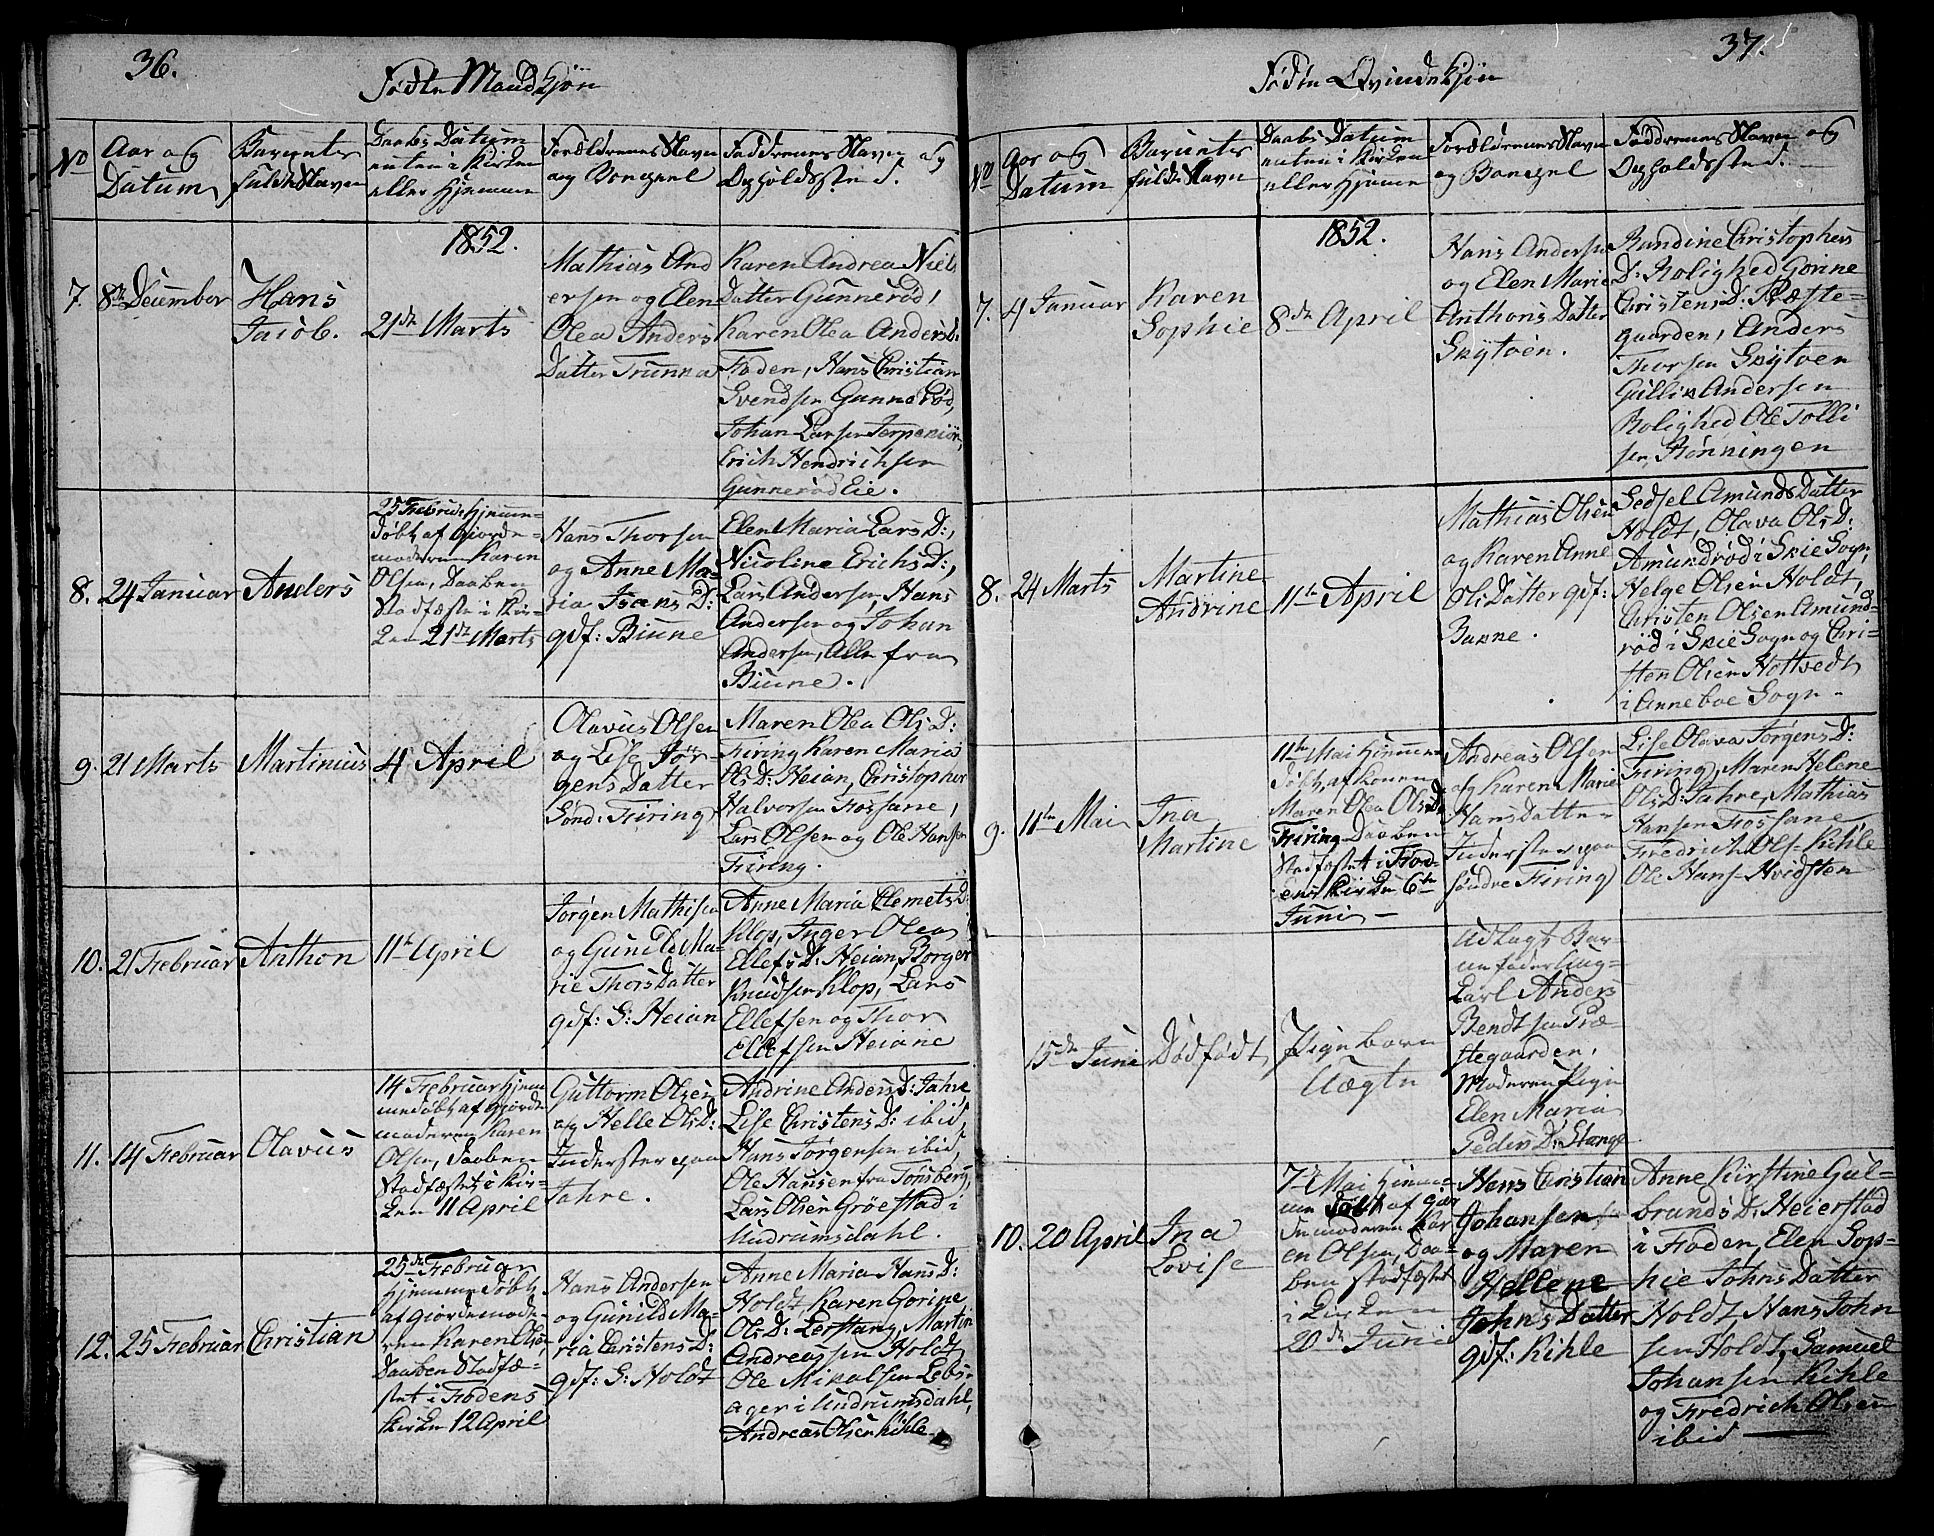 36.
Fødte Mandkjøn
No
Aar og
Datum
Barnets
fulde Navn
Daabs Datum
enten i Kirken
eller Hjemme
Forældrenes Navn
og Boepæl
Faddrenes Navn og
Opholdssted.
1852.
7.
8de December
Hans
Jacob.
21de Marts
Mathias And
ersen og Elen
Olea Anders
Datter Trunna
Karen Andrea Niels
Datter Gunnerød,
Karen Olea Anders D:
Foden, Hans Christian
Svendsen Gunnerød,
Johan Larsen
Erich Hendrichsen
Gunnerød Eie.
8.
24 Januar
Anders
25 Februar Hjemme
døbt af Giorde-
moderen Karen
Olsen, Daaben
Stadfæstet i Kir-
ken 21de Marts
Hans Thorsen
og Anne Ma-
ria Isans D:
gdf: Biune
Elen Maria Lars D:,
Nicoline Erichs D:,
Lars Andersen, Hans
Andersen og Johan
Andersen, Alle fra
Biune.
9.
21 Marts
Martinius
4 April
Olavus Olsen
og Lise Jør-
gens Datter
Sønd: Firing
Maren Olea Ols D:
Firing Karen Maria
Ols D: Heian, Christopher
Halvorsen Fossane,
Lars Olsen og Ole Hansen
Firing.
10.
21 Februar
Anthon
11te April
Jørgen Mathisen
og Gunild Ma-
rie Thors Datter
gdf: S: Heian
Anne Maria Clemets D:
Klop, Inger Olea
Ellefs D: Heian, Borger
Knudsen Klop, Lars
Ellefsen og Thor
Ellefsen Heiane
11.
14 Februar
Olavus
14 Februar Hjem
medøbt af Gjorde
moderen Karen
Olsen, Daaben
Stadfæstet i Kir-
ken 11 April
Guttorm Olsen
og Helle Ols D:
Inderster paa
Jahre.
Andrine Anders D: Jahre,
Lise Christens D: ibid,
Hans Jørgensen ibid,
Ole Hansen fra Tønsberg,
Lars Olsen Grøestad i
Undrumsdahl.
12.
25 Februar
Christian
25de Februar
Hjemme døbt
af Giordemode-
ren Karen Olsen,
Daaben Stadfæ-
stet i Fodens
Kirken 12 April
Hans Andersen
og Gunild Ma-
ria Christens D:
gdf: S: Holdt
Anne Maria Hans D:
Holdt Karen Gorine
Ols D: Lerstang, Martin
Andreassen Holdt,
Ole Mikalsen Lebs-
ager i Undrumsdahl,
Andreas Olsen Kihle
37.
Fødte Qvindekjøn
No
Aar og
Datum
Barnets
fulde Navn
Daabs Datum
enten i Kirken
eller Hjemme
Forældrenes Navn
og Boepæl
Faddrenes Navn og
Opholdssted.
1852.
7.
4 Januar
Karen
Sophie
8de April
Hans Andersen
og Elen Marie
Anthons Datter
Skytøen.
Randine Christophers
D: Rolighed, Gorine
Christens D: Præste-
gaarden, Anders
Thorsen Skytøen
Gullik Andersen
Rolighed Ole Tolli
sen, Rønningen
8.
24 Marts
Martine
Andrine
11te April
Mathias Olsen
og Karen Anne
Ols Datter gdf:
Bakke.
Sedsel Amunds Datter
Holdt, Olava Ols D:
Amundrød i Skie Sogn,
Helge Olsen Holdt,
Christen Olsen Amund-
rød i Skie Sogn og Chri-
sten Olsen Hottvedt
i Anneboe Sogn-
9.
11te Mai
Ina
Martine
11te Mai Hjemme
døbt, af Konen
Maren Olea Ols D:
Firing Daaben
Stadfæstet i Fod-
ens Kirken 6te
Juni -
Andreas Olsen
og Karen Marie
Hans Datter
Inderster paa
søndre Firing
Lise Olava Jørgens D:
Firing, Maren Helene
Ols D: Jahre, Mathias
Hansen Fossane
Fredrich Ols- Kihle
Ole Hans- Hvidsten
15de Juni
Dødfødt,
Pigebarn
Uægte
Udlagt Bar-
nefader Ung-
karl Anders
Bendtsen Præ-
stegaarden,
Moderen Pige
Elen Maria
Peders D: Stange
10.
20 April
Ina
Lovise
7- Mai Hjem-
me Døbt af Gior
demoderen Kar
en Olsen, Daa-
ben stadfæstet
i Kirken
20de Juni
Hans Christian
Johansen
og Maren
Hellene
Johns Datter
gdf: Kihle
Anne Kirstine Gul-
brands D: Heierstad
i Foden, Elen Sop-
hie Johns Datter
Holdt, Hans John
sen Holdt, Samuel
Johansen Kihle
og Fredrich Olsen
ibid